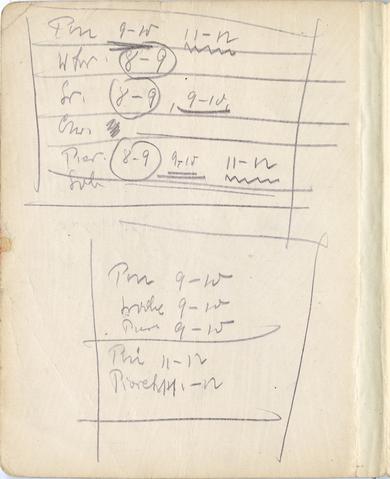 Pon 9-10 11-12
Wtor. 8-9
Śr. 8-9, 9-10,
Czw.
Piąt. 8-9 9-10 11-12
Sob
Pon 9-10
9-10
Piąt 9-10
Pon 11-12
11-12